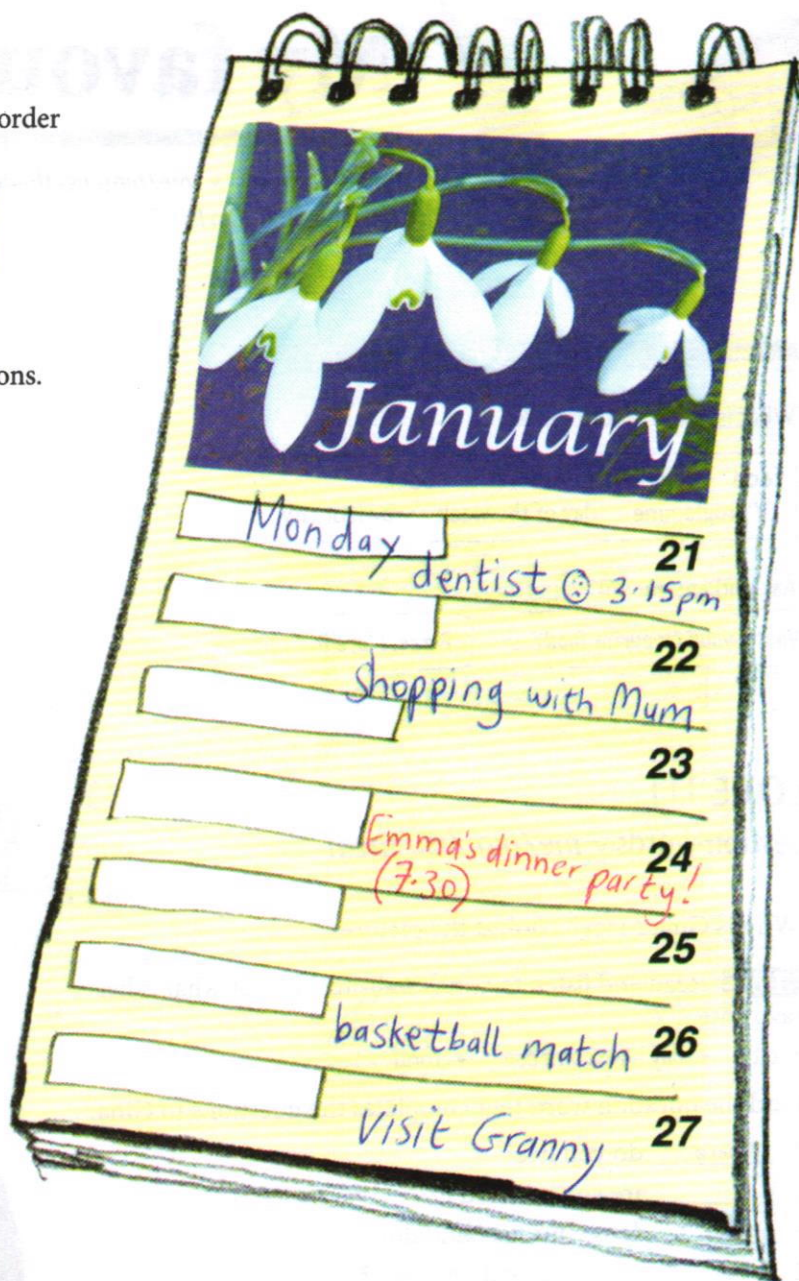 order
ons.
January
Monday
21
dentist ☹ 3.15pm
22
Shopping with Mum
23
24
Emma's dinner party!
(7.30)
25
basketball match 26
Visit Granny 27